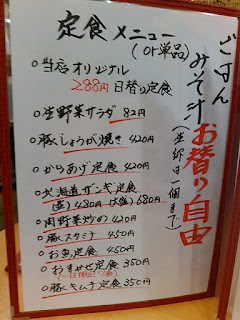 定食メニュー
(or単品)
○当店オリジナル
288円日替り定食
○生野菜サラダ 82円
○豚しょうが焼き 420円
○からあげ定食 420円
○北海道ザンギ定食
(並)430円(大盛)680円
○肉野菜炒め 420円
○豚スタミナ 450円
○お魚定食 450円
○おまかせ定食 350円
○豚キムチ定食 350円
ごはん
みそ汁
お替り自由
(生卵は一個まで)